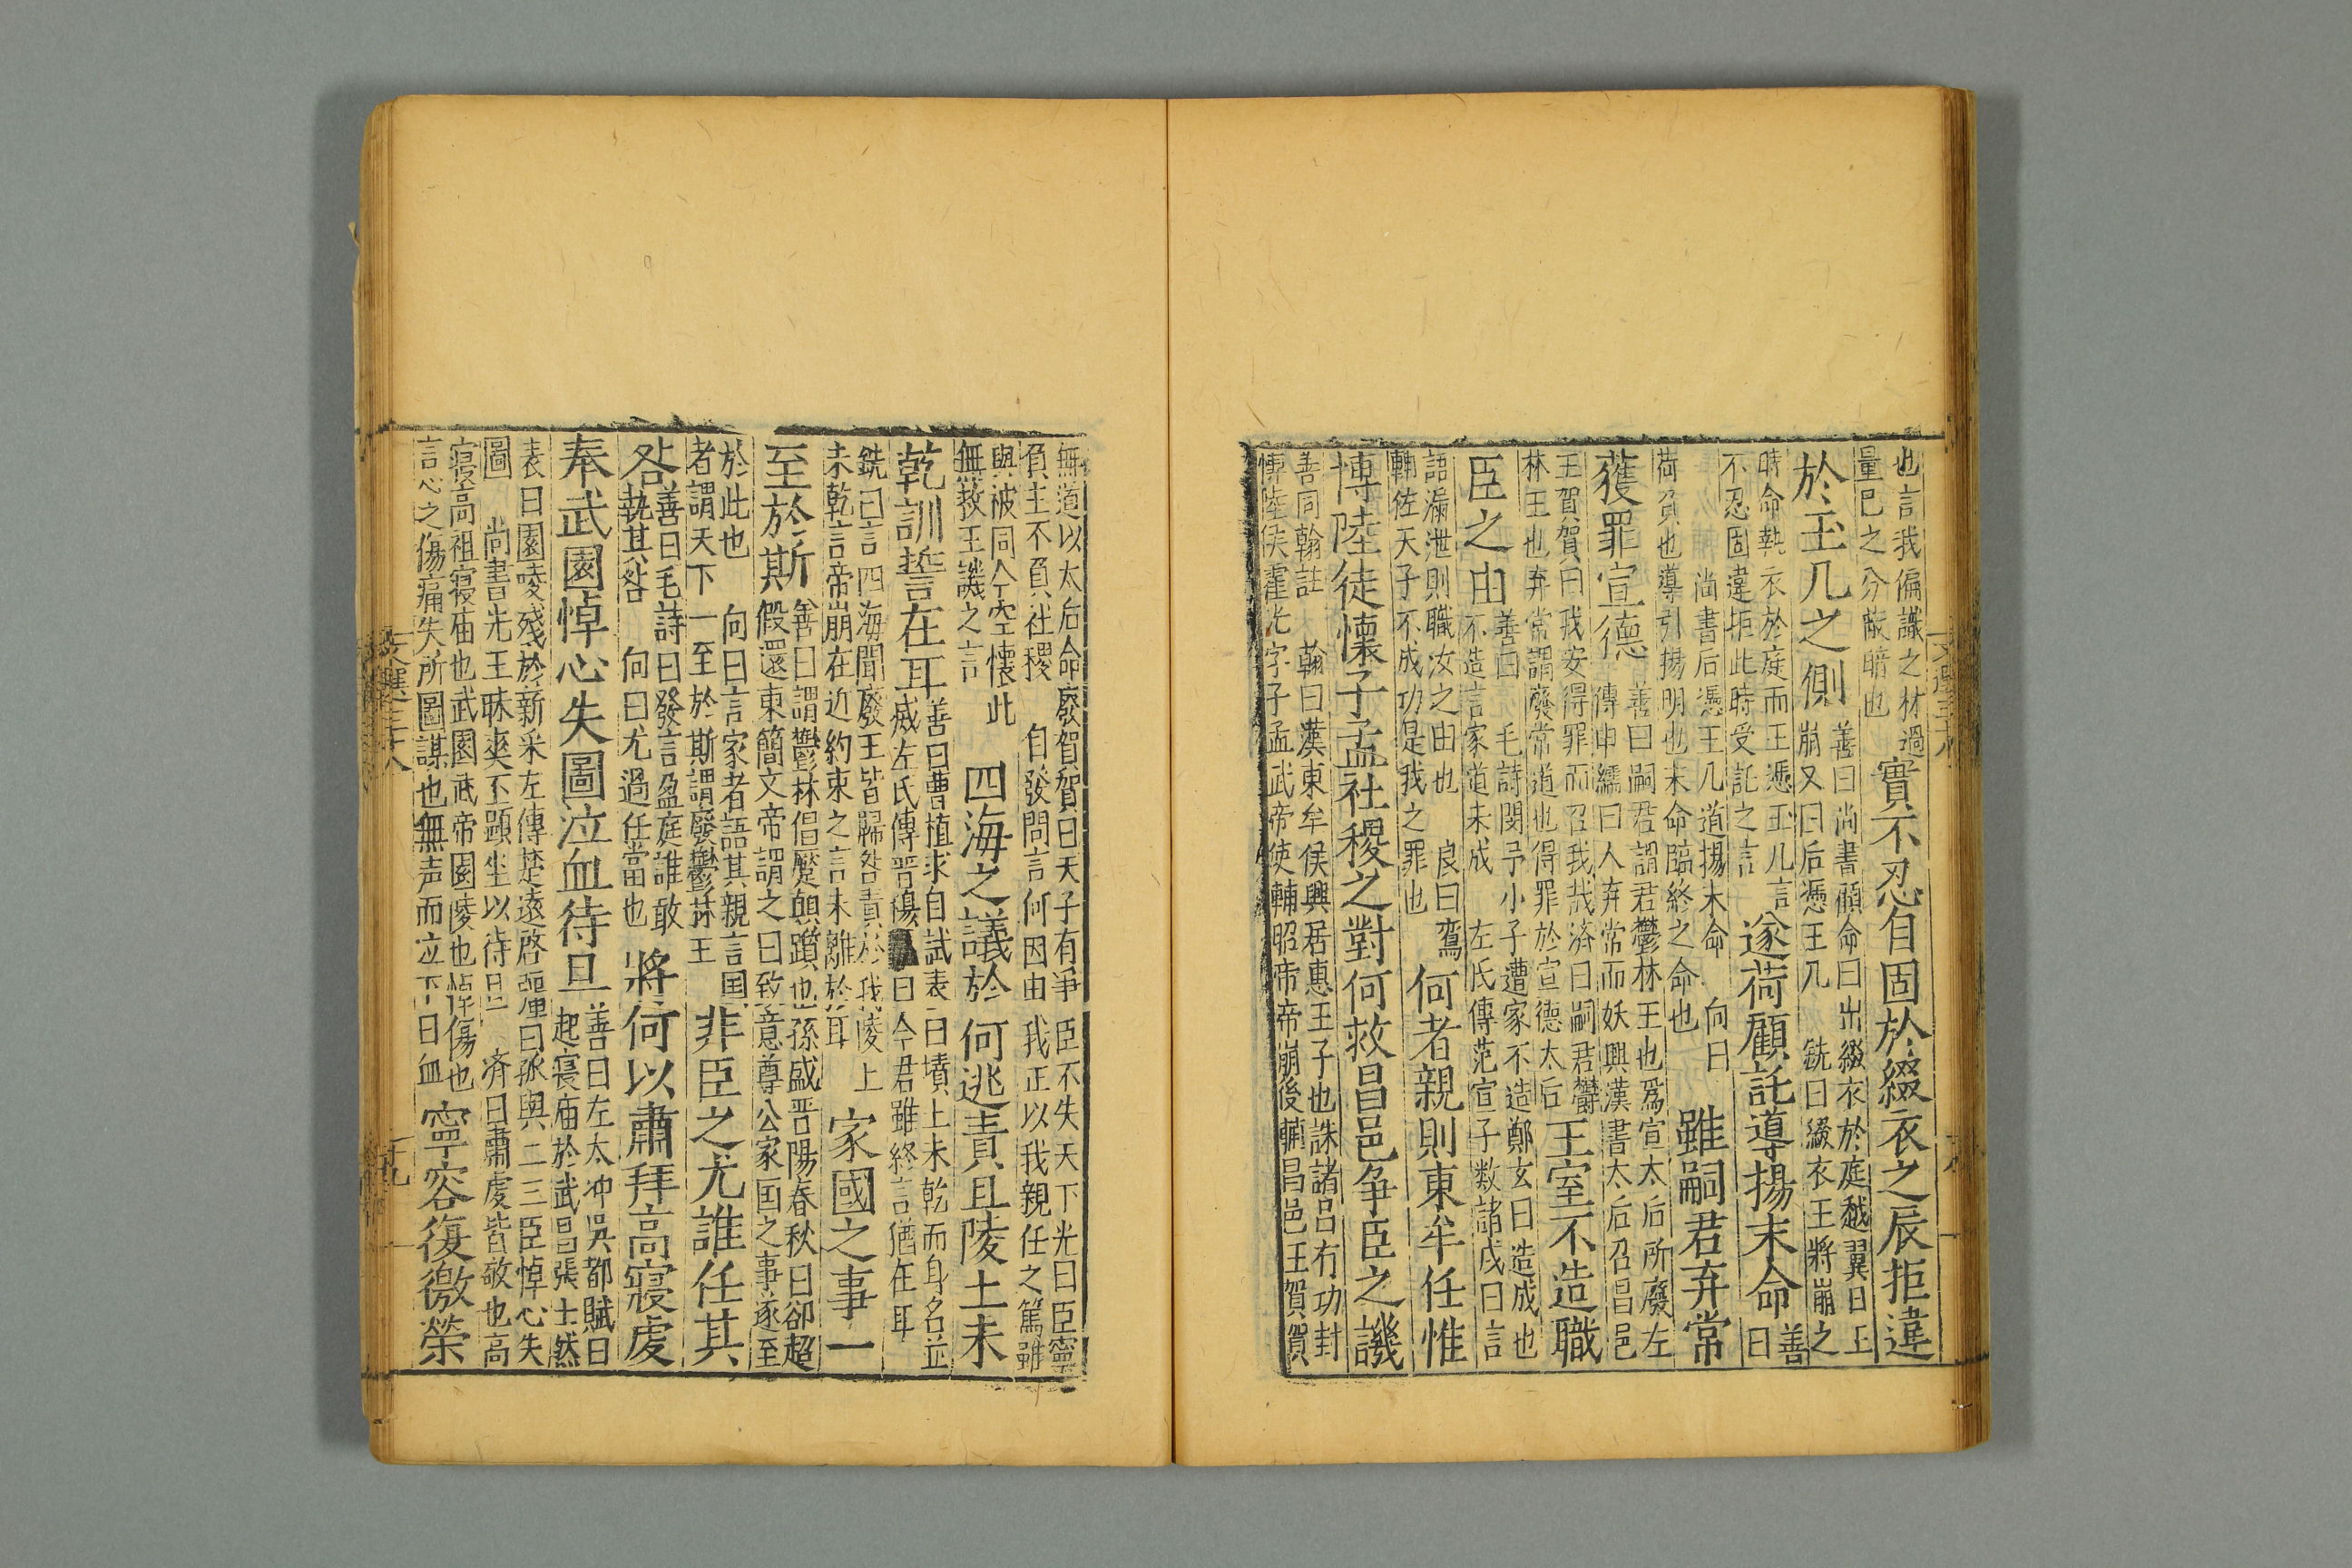 文選三十八
十八
也言我偏識之材過
量已之分蔽暗也
實不忍自固於綴衣之辰拒違
於玉几之側
善曰尚書顧命曰出綴衣於庭越翼日王
崩又曰后憑玉几　銑曰綴衣王將崩之
時命執衣於庭而王憑玉几言
不忍固違拒此時受託之言
遂荷顧託導揚末命
善
曰
尚書后憑玉几道揚末命　向曰
荷負也導引揚明也末命臨終之命也
雖嗣君弃常
獲罪宣德
善曰嗣君謂君鬱林王也爲宣太后所廢左
傳申繻曰人弃常而妖興漢書太后召昌邑
王賀賀曰我安得罪而召我哉済曰嗣君鬱
林王也弃常謂廢常道也得罪於宣德太后
王室不造職
臣之由
善曰　毛詩閔予小子遭家不造鄭玄曰造成也
不造言家道未成　左氏傳范宣子数諸戎曰言
語漏泄則職汝之由也　良曰鸞
輔佐天子不成功是我之罪也
何者親則東牟任惟
博陸徒懷子孟社稷之對何救昌邑争臣之譏
善同翰註　翰曰漢東牟侯興居惠王子也誅諸呂有功封
博陸侯霍光字子孟武帝使輔昭帝帝崩後輔昌邑王賀賀
無道以太后命廢賀賀曰天子有爭臣不失天下光曰臣寧
負主不負社稷　自發問言何因由我正以我親任之篤雖
與被同今空懷此
無救王譏之言
四海之議於何逃責且陵土未
乾訓誓在耳
善曰曹植求自試表曰墳上未乾而身名並
滅左氏傳晉穆曰今君雖終言猶在耳
銑曰言四海聞廢王皆歸咎責於我陵上
未乾言帝崩在近約束之言未離於耳
家國之事一
至於斯
善曰謂鬱林倡蹙顛躓也孫盛晋陽春秋曰郤超
假還東簡文帝謂之曰致意尊公家国之事遂至
於此也　向曰言家者語其親言国
者謂天下一至於斯謂廢鬱林王
非臣之尤誰任其
咎
善曰毛詩曰發言盈庭誰敢
執其咎　向曰尤過任當也
將何以肅拜高寢虔
奉武園悼心失圖泣血待旦
善曰左太冲吳都賦曰
起寢庙於武昌張士然
表曰園陵殘於新采左傳楚遠啓疆曰孤與二三臣悼心失
圖　尚書先王昧爽丕顕坐以待旦　済曰肅虔皆敬也高
寢高祖寢庙也武園武帝園陵也悼傷也
言心之傷痛失所圖謀也無声而泣下曰血
寧容復徼榮
文選三十八
十九